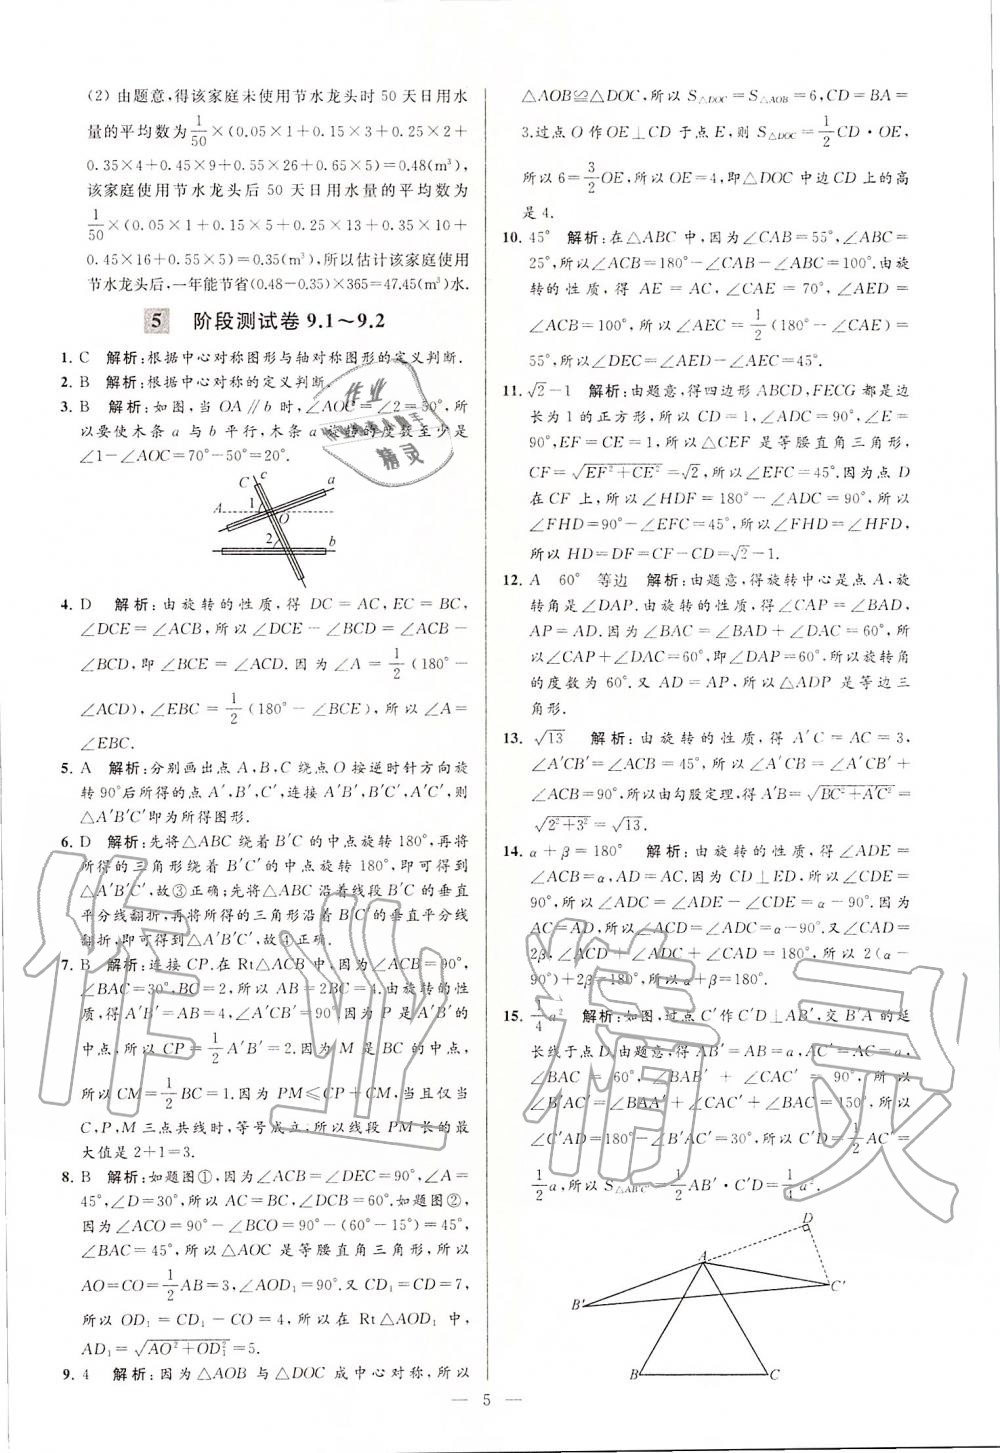 (2) 由题意,得该家庭未使用节水龙头时 50 天日用水
量的平均数为1/50×(0.05×1+0.15×3+0.25×2+
0.35×4+0.45×9+0.55×26+0.65×5)=0.48(m³),
该家庭使用节水龙头后 50 天日用水量的平均数为
1/50×(0.05×1+0.15×5+0.25×13+0.35×10+
0.45×16+0.55×5)=0.35(m³),所以估计该家庭使用
节水龙头后,一年能节省(0.48-0.35)×365=47.45(m³)水.
5 阶段测试卷 9.1~9.2
1. C 解析:根据中心对称图形与轴对称图形的定义判断.
2. B 解析:根据中心对称的定义判断.
3. B 解析:如图,当 OA∥b 时,∠AOC=∠2=50°,所
以要使木条 a 与 b 平行,木条 a 旋转的度数至少是
∠1-∠AOC=70°-50°=20°.
C c a
A 1 O
2 b
4. D 解析:由旋转的性质,得 DC=AC,EC=BC,
∠DCE=∠ACB,所以∠DCE-∠BCD=∠ACB-
∠BCD,即∠BCE=∠ACD.因为∠A=1/2(180°-
∠ACD),∠EBC=1/2(180°-∠BCE),所以∠A=
∠EBC.
5. A 解析:分别画出点 A,B,C 绕点 O 按逆时针方向旋
转 90°后所得的点 A′,B′,C′,连接 A′B′,B′C′,A′C′,则
△A′B′C′即为所得图形.
6. D 解析:先将△ABC 绕着 B′C 的中点旋转 180°,再将
所得的三角形绕着 B′C′的中点旋转 180°,即可得到
△A′B′C′,故③正确;先将△ABC 沿着线段 B′C 的垂直
平分线翻折,再将所得的三角形沿着 B′C′的垂直平分线
翻折,即可得到△A′B′C′,故④正确.
7. B 解析:连接 CP.在 Rt△ACB 中,因为∠ACB=90°,
∠BAC=30°,BC=2,所以 AB=2BC=4.由旋转的性
质,得 A′B′=AB=4,∠A′CB′=90°.因为 P 是 A′B′的
中点,所以 CP=1/2A′B′=2.因为 M 是 BC 的中点,
所以 CM=1/2BC=1.因为 PM≤CP+CM,当且仅当
C,P,M 三点共线时,等号成立,所以线段 PM 长的最
大值是 2+1=3.
8. B 解析:如题图①,因为∠ACB=∠DEC=90°,∠A=
45°,∠D=30°,所以 AC=BC,∠DCB=60°.如题图②,
因为∠ACO=90°-∠BCO=90°-(60°-15°)=45°,
∠BAC=45°,所以△AOC 是等腰直角三角形,所以
AO=CO=1/2AB=3,∠AOD₁=90°.又 CD₁=CD=7,
所以 OD₁=CD₁-CO=4,所以在 Rt△AOD₁ 中,
AD₁=√(AO²+OD₁²)=5.
9. 4 解析:因为△AOB 与△DOC 成中心对称,所以
△AOB≌△DOC,所以 S△DOC=S△AOB=6,CD=BA=
3.过点 O 作 OE⊥CD 于点 E,则 S△DOC=1/2CD·OE,
所以 6=3/2OE,所以 OE=4,即△DOC 中边 CD 上的高
是 4.
10. 45° 解析:在△ABC 中,因为∠CAB=55°,∠ABC=
25°,所以∠ACB=180°-∠CAB-∠ABC=100°.由旋
转的性质,得 AE=AC,∠CAE=70°,∠AED=
∠ACB=100°,所以∠AEC=1/2(180°-∠CAE)=
55°,所以∠DEC=∠AED-∠AEC=45°.
11. √2-1 解析:由题意,得四边形 ABCD,FECG 都是边
长为 1 的正方形,所以 CD=1,∠ADC=90°,∠E=
90°,EF=CE=1,所以△CEF 是等腰直角三角形,
CF=√(EF²+CE²)=√2,所以∠EFC=45°.因为点 D
在 CF 上,所以∠HDF=180°-∠ADC=90°,所以
∠FHD=90°-∠EFC=45°,所以∠FHD=∠HFD,
所以 HD=DF=CF-CD=√2-1.
12. A 60° 等边 解析:由题意,得旋转中心是点 A,旋
转角是∠DAP.由旋转的性质,得∠CAP=∠BAD,
AP=AD.因为∠BAC=∠BAD+∠DAC=60°,所
以∠CAP+∠DAC=60°,即∠DAP=60°,所以旋转角
的度数为 60°.又 AD=AP,所以△ADP 是等边三
角形.
13. √13 解析:由旋转的性质,得 A′C=AC=3,
∠A′CB′=∠ACB=45°,所以∠A′CB=∠A′CB′+
∠ACB=90°,所以由勾股定理,得 A′B=√(BC²+A′C²)=
√(2²+3²)=√13.
14. α+β=180° 解析:由旋转的性质,得∠ADE=
∠ABC=α,AD=AC.因为 CD⊥ED,所以∠CDE=
90°,所以∠ADC=∠ADE-∠CDE=α-90°.因为
AC=AD,所以∠ACD=∠ADC=α-90°.又∠CAD=
2β,∠ADC+∠ACD+∠CAD=180°,所以 2(α-
90°)+2β=180°,所以α+β=180°.
15. 1/4a² 解析:如图,过点 C′作 C′D⊥AB′,交 B′A 的延
长线于点 D.由题意,得 AB′=AB=a,AC′=AC=a,
∠BAC=60°,∠BAB′+∠CAC′=90°,所以
∠B′AC′=∠BAB′+∠CAC′+∠BAC=150°,所以
∠C′AD=180°-∠B′AC′=30°,所以 C′D=1/2AC′=
1/2a,所以 S△AB′C′=1/2AB′·C′D=1/4a².
D
A
B′ C′
B C
— 5 —
作业
精灵
作业精灵